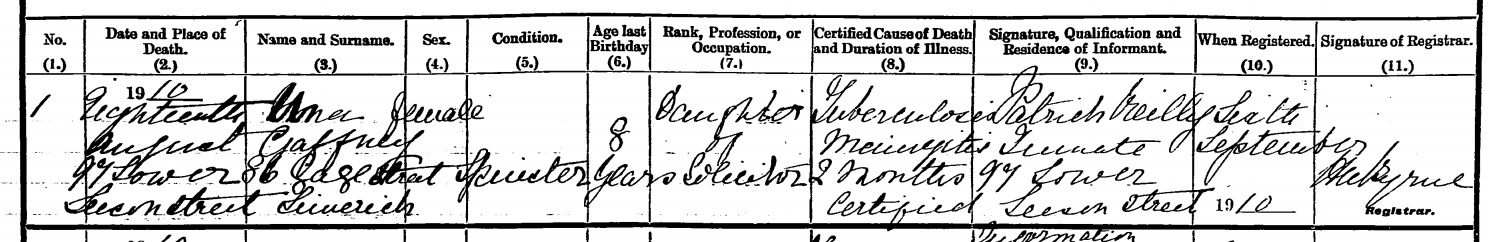 No. Date and Place of Name and Surname. Sex. Condition. Age last Rank, Profession, or Certified Cause of Death Signature, Qualification and When Registered. Signature of Registrar.
Death. Birthday Occupation. and Duration of Illness. Residence of Informant.
(1.) (2.) (3.) (4.) (5.) (6.) (7.) (8.) (9.) (10.) (11.)
1910
1 Eighteenth Una female Daughter Tuberculosis Patrick Reilly Sixth
August Gaffney 8 of Meningitis Inmate September
97 Lower 86 Street Spinster Years Solicitor 2 Months 97 Lower Byrne
Leeson street Limerick Certified Leeson Street 1910 Registrar.
10 Information